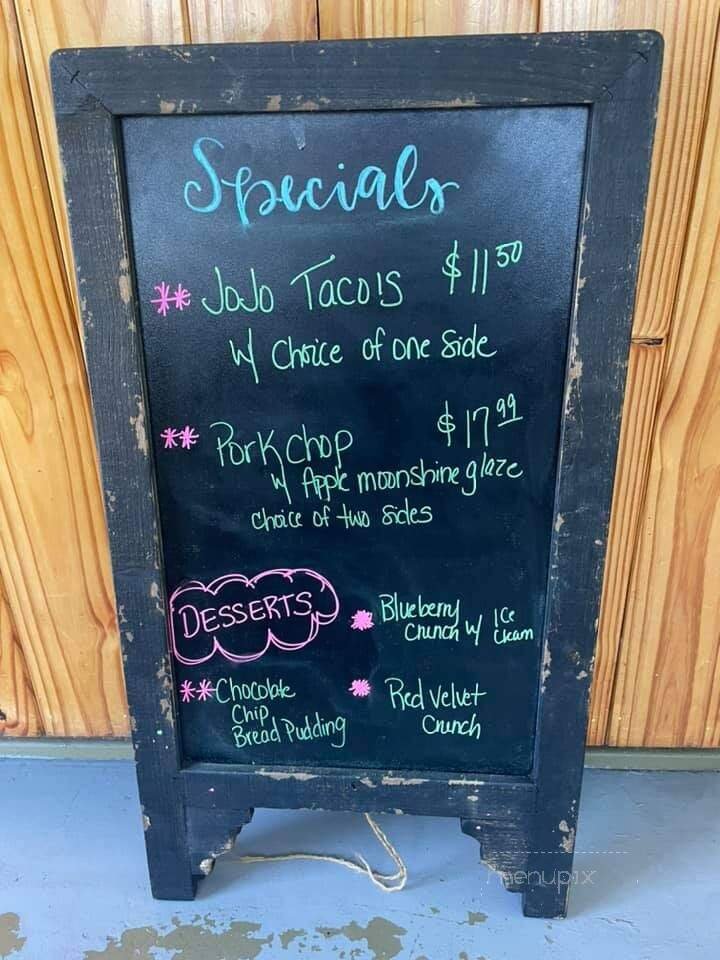 Specials
** JoJo Tacois $11 50
w/ Choice of one Side
** Pork chop $17 99
w/ Apple moonshine glaze
choice of two sides
DESSERTS
* Blueberry
Crunch w/ Ice
Cream
** Chocolate
Chip
Bread Pudding
* Red Velvet
Crunch
menupix